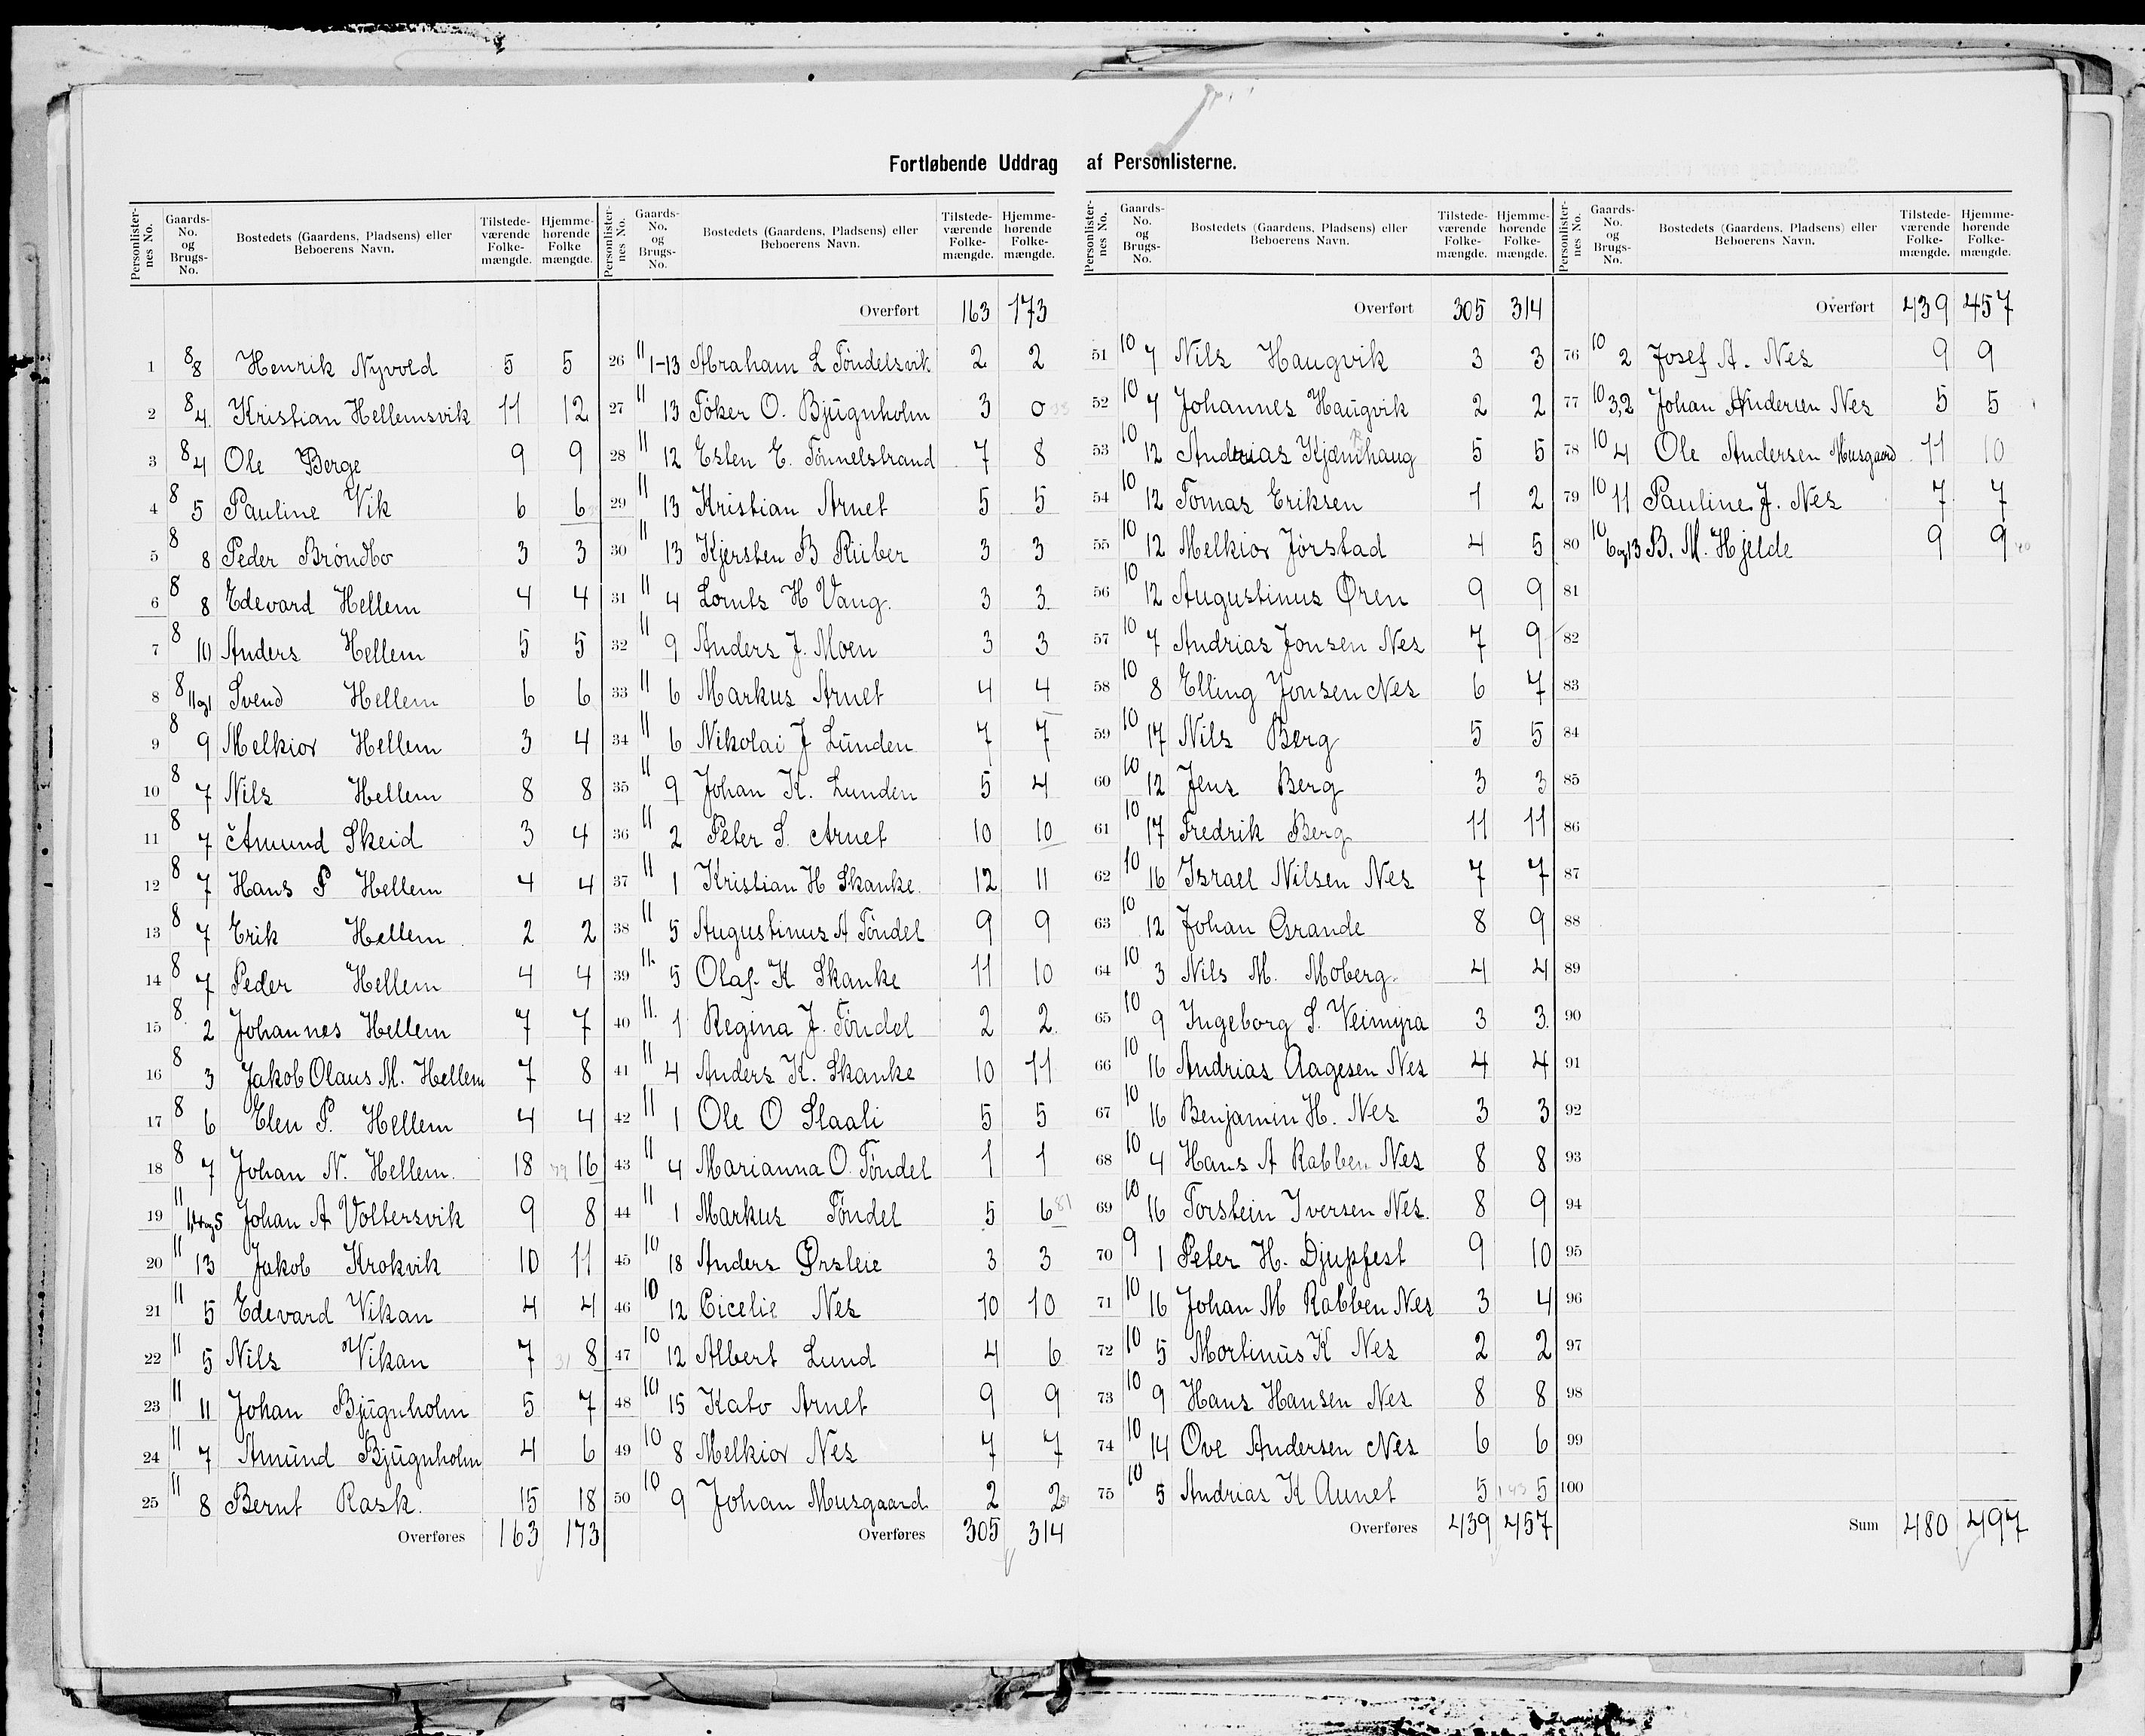 Fortløbende Uddrag af Personlisterne.
Personlisternes No. Gaards-No. og Brugs-No. Bostedets (Gaardens, Pladsens) eller Beboerens Navn. Tilstedeværende Folkemængde. Hjemmehørende Folkemængde.
1 8 8 Henrik Nyvold 5 5
2 8 4 Kristian Hellemsvik 11 12
3 8 4 Ole Berge 9 9
4 8 5 Pauline Vik 6 6
5 8 8 Peder Bröndbo 3 3
6 8 8 Edevard Hellem 4 4
7 8 10 Anders Hellem 5 5
8 8 11og1 Svend Hellem 6 6
9 8 9 Melkior Hellem 3 4
10 8 7 Nils Hellem 8 8
11 8 7 Amund Skeid 3 4
12 8 7 Hans P Hellem 4 4
13 8 7 Erik Hellem 2 2
14 8 7 Peder Hellem 4 4
15 8 2 Johannes Hellem 7 7
16 8 3 Jakob Olaus M. Hellem 7 8
17 8 6 Elen P. Hellem 4 4
18 8 7 Johan N. Hellem. 18 16
19 11 1,4og5 Johan A Voltersvik 9 8
20 11 13 Jakob Krokvik 10 11
21 11 5 Edevard Vikan 4 4
22 11 5 Nils Vikan 7 8
23 11 11 Johan Bjugnholm 5 7
24 11 7 Amund Bjugnholm 4 6
25 11 8 Bernt Rask. 15 18
Overføres 163 173
Personlisternes No. Gaards-No. og Brugs-No. Bostedets (Gaardens, Pladsens) eller Beboerens Navn. Tilstedeværende Folkemængde. Hjemmehørende Folkemængde.
Overført 163 173
26 11 1-13 Abraham L Töndelsvik 2 2
27 11 13 Töker O. Bjugnholm 3 0
28 11 12 Esten E. Tönnelstrand 7 8
29 11 13 Kristian Arnet 5 5
30 11 13 Kjersten B Riiber 3 3
31 11 4 Lornts H Vang. 3 3
32 11 9 Anders J. Moen 3 3
33 11 6 Markus Arnet 4 4
34 11 6 Nikolai J Lunden 7 7
35 11 9 Johan K. Lunden 5 4
36 11 2 Peter S. Arnet 10 10
37 11 1 Kristian H Skanke. 12 11
38 11 5 Augustinus A Töndel 9 9
39 11 5 Olaf K Skanke 11 10
40 11 1 Regina J. Töndel 2 2
41 11 4 Anders K. Skanke 10 11
42 11 1 Ole O Slaali 5 5
43 11 4 Marianna O. Töndel 1 1
44 11 1 Markus Töndel 5 6 81
45 10 18 Anders Ørsleie 3 3
46 10 12 Cicelie Nes 10 10
47 10 12 Albert Lund 4 6
48 10 15 Kato Arnet 9 9
49 10 8 Melkior Nes 7 7
50 10 9 Johan Musgaard 2 2
Overføres 305 314
Personlisternes No. Gaards-No. og Brugs-No. Bostedets (Gaardens, Pladsens) eller Beboerens Navn. Tilstedeværende Folkemængde. Hjemmehørende Folkemængde.
Overført 305 314
51 10 7 Nils Haugvik 3 3
52 10 7 Johannes Haugvik 2 2
53 10 12 Andreias 5 5
54 10 12 Tomas Eriksen 1 2
55 10 12 Melkior Jörstad 4 5
56 10 12 Augustinus Øren 9 9
57 10 7 Andrias Jonsen Nes 7 9
58 10 8 Elling Jonsen Nes 6 7
59 10 17 Nils Berg 5 5
60 10 12 Jens Berg 3 3
61 10 17 Fredrik Berg 11 11
62 10 16 Israel Nilsen Nes 7 7
63 10 12 Johan Grande 8 9
64 10 3 Nils M. Moberg. 4 4
65 10 9 Ingeborg S. Veimyra 3 3
66 10 16 Andrias Aagesen Nes 4 4
67 10 16 Benjamin H. Nes 3 3
68 10 4 Hans A Rabben Nes 8 8
69 10 16 Torstein Iversen Nes. 8 9
70 9 1 Peter H. Djupfest 9 10
71 10 16 Johan M Rabben Nes 3 4
72 10 5 Mortinus K Nes 2 2
73 10 9 Hans Hansen Nes 8 8
74 10 14 Ove Andersen Nes 6 6
75 10 5 Andrias K Aunet 5 143 5
Overføres 439 457
Personlisternes No. Gaards-No. og Brugs-No. Bostedets (Gaardens, Pladsens) eller Beboerens Navn. Tilstedeværende Folkemængde. Hjemmehørende Folkemængde.
Overført 439 457
76 10 2 Josef A. Nes 9 9
77 10 3,2 Johan Andersen Nes 5 5
78 10 4 Ole Andersen Musgaard 11 10
79 10 11 Pauline J. Nes 7 7
80 10 6og13 B. M. Hjelde 9 9 40
81
82
83
84
85
86
87
88
89
90
91
92
93
94
95
96
97
98
99
100
Sum 480 497